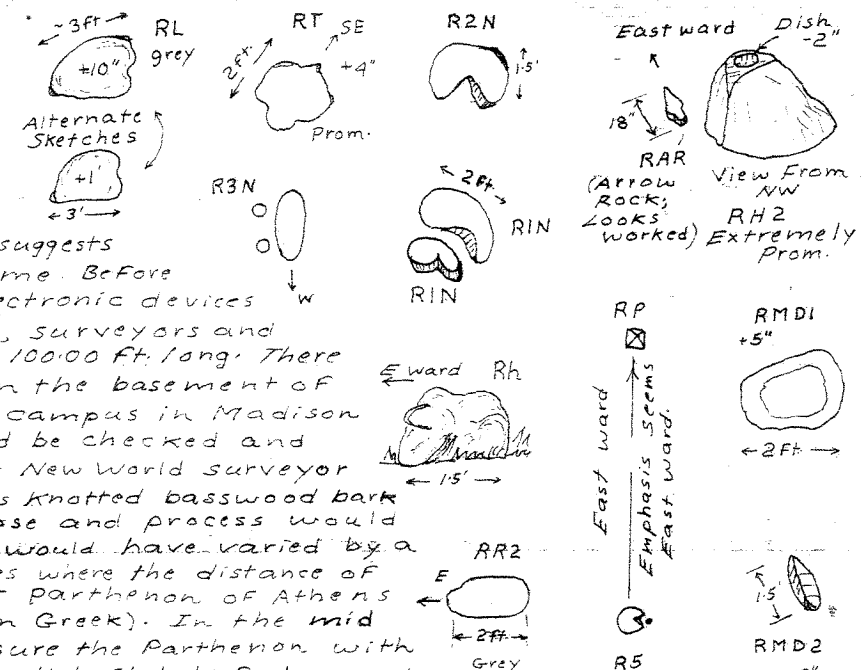 ~3ft
RL
grey
±10"
Alternate
Sketches
+1'
3'
RT
SE
2ft.
+4"
Prom.
R2N
1.5'
East ward
Dish
-2"
18"
RAR
(Arrow
Rock;
Looks
worked)
View From
NW
RH2
Extremely
Prom.
R3N
W
2Ft.
R1N
R1N
suggests
me. Before
ectronic devices
, surveyors and
100.00 ft. long. There
n the basement of
campus in Madison
d be checked and
New World surveyor
s knotted basswood bark
se and process would
would have varied by a
es where the distance of
Parthenon of Athens
n Greek). In the mid
sure the Parthenon with
E ward
Rh
1.5'
RR2
E
2ft
Grey
RP
East ward
Emphasis seems
East ward.
R5
RMD1
+5"
2Ft.
1.5'
RMD2